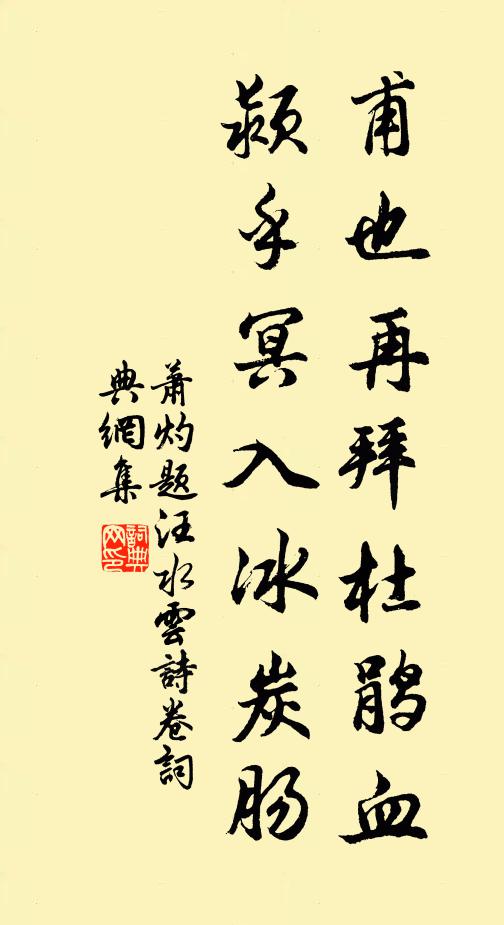 甫也再拜杜鹃血
颍乎冥入冰炭肠
萧灼题汪水雲詩卷詞
典網集
詞典网印